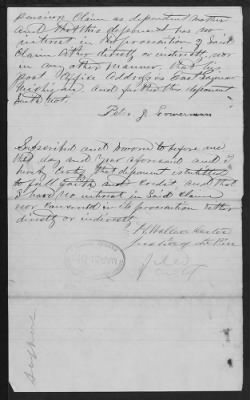 pension Claim as dependent mother
and that this deponent has no
interest in the prosecution of said
Claim either directly or indirectly, or
in any other manner. that
post office address is East
Michigan and further this deponent
saith not.
Peter J
Subscribed and sworn to before me
the day and year aforesaid and I
hereby Certify that deponent is entitled
to full faith and credit and that
I have no interest in said claim
nor concerned in its prosecution either
directly or indirectly
Wallace
Justice of the Peace
filed